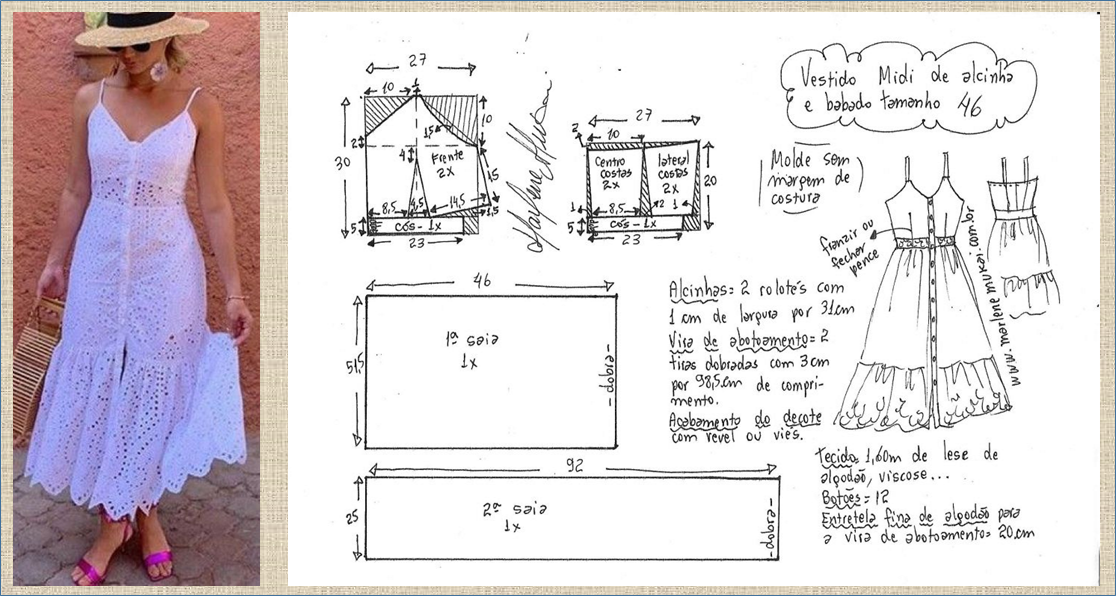 Vestido Midi de alcinha
e babado tamanho 46
Molde sem
margem de
costura
27
10
1
30
2
10
15
4
Frente
2x
15
8,5
4,5
14,5
1,5
5
cós - 1x
23
Marlene Mukai
27
2
10
centro
costas
2x
lateral
costas
2x
20
1
8,5
2
1
5
cós - 1x
23
franzir ou
fechar
pence
www.marlenemukai.com.br
46
51,5
1ª saia
1x
- dobra -
Alcinhas = 2 rolotês com
1 cm de largura por 31cm
Vira de abotoamento = 2
tiras dobradas com 3 cm
por 98,5cm de compri-
mento.
Acabamento do decote
com revel ou viés.
92
25
2ª saia
1x
- dobra -
Tecido: 1,60m de lese de
algodão, viscose...
Botões = 12
Entretela fina de algodão para
a vira de abotoamento = 20cm